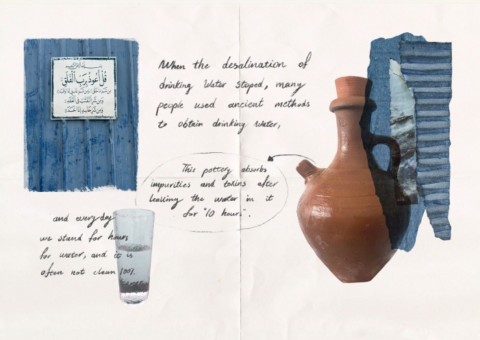 قل أعوذ برب الفلق
When the desalination of
drinking water stoped, many
people used ancient methods
to obtain drinking water,
This pottery absorbs
impurities and toxins after
leaving the water in it
for "10 hours".
and every day
we stand for hours
for water, and it is
often not clean 100%.